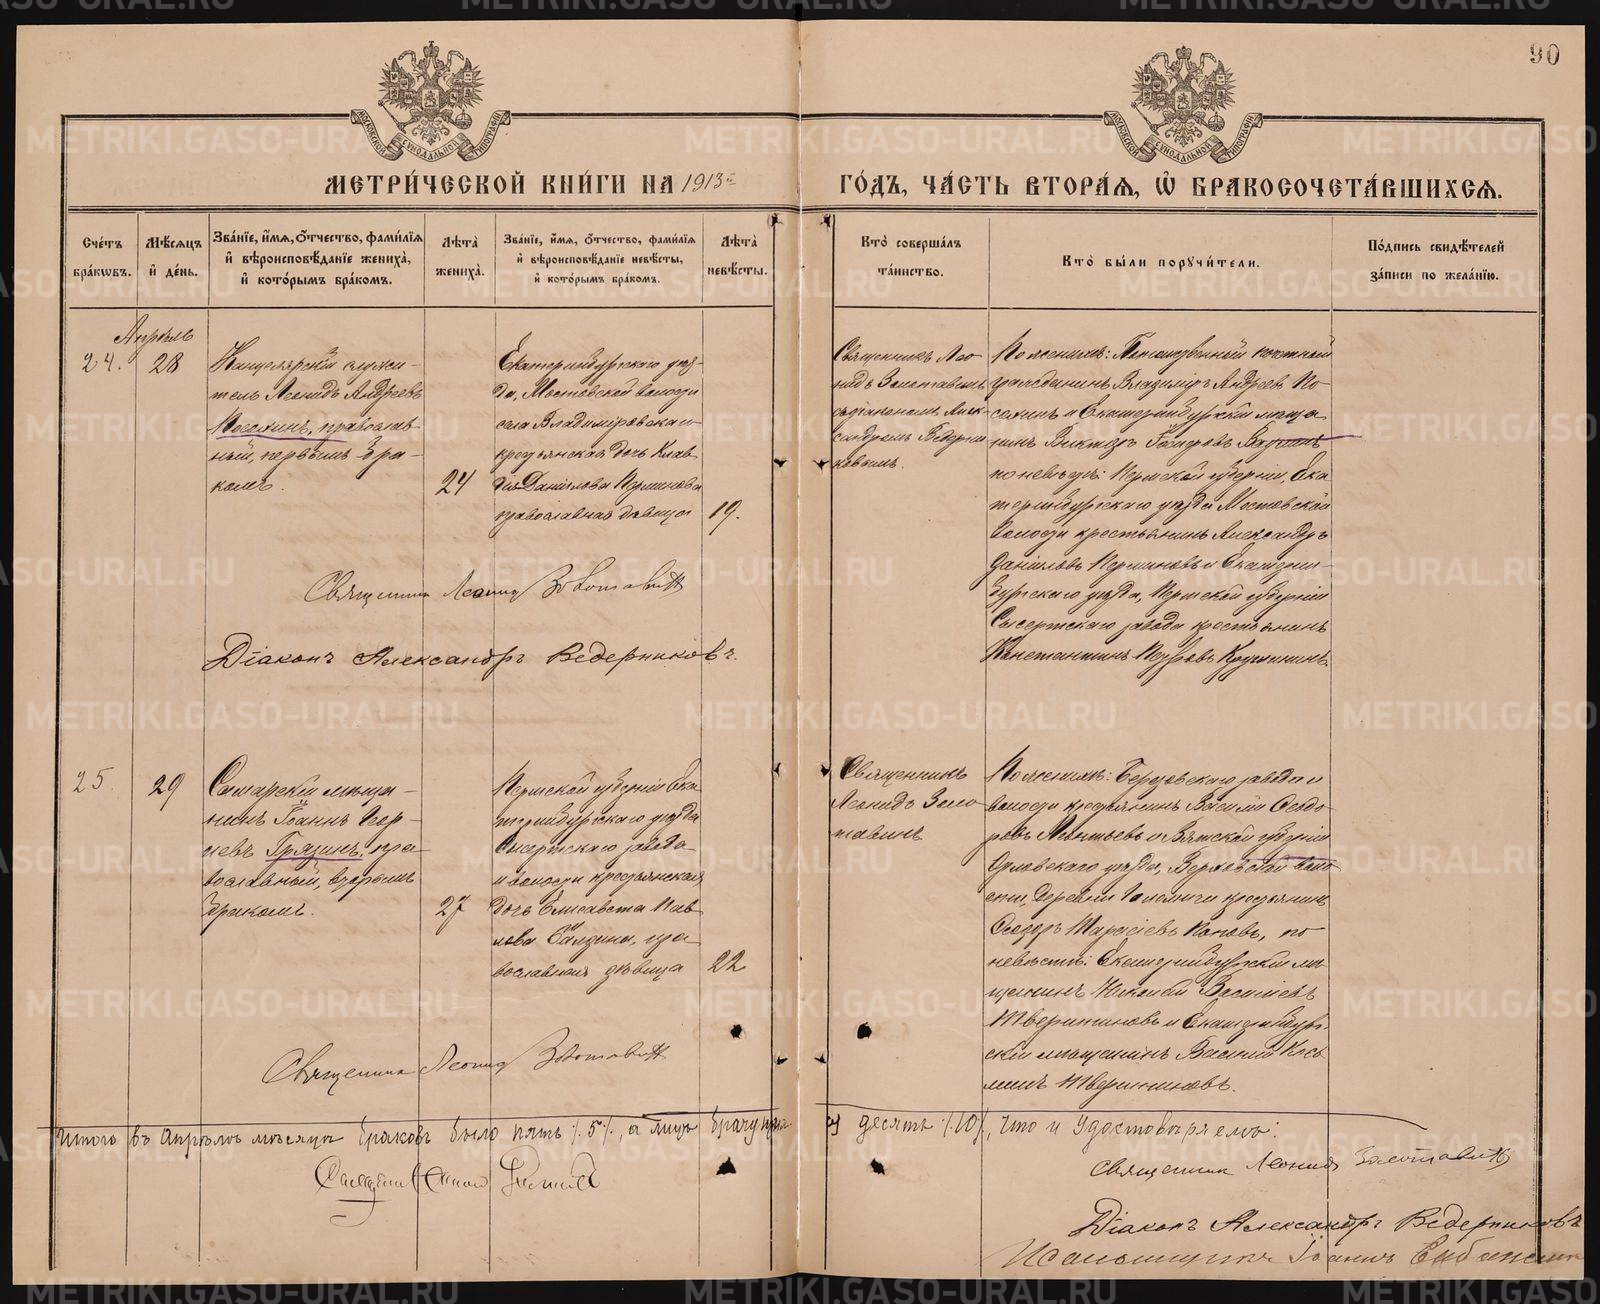 90
МЕТРИ́ЧЕСКОЙ КНИ́ГИ НА 1913й ГО́ДЪ, ЧА́СТЬ ВТОРА́Я, Ѡ БРАКОСОЧЕТА́ВШИХСЯ.
Сче́тъ бра́кѡвъ.
Мѣ́сяцъ и де́нь.
Зва́нїе, и́мя, о́тчество, фами́лїя и вѣроисповѣ́данїе жениха̀, и кото́рымъ бра́комъ.
Лѣ́та жениха̀.
Зва́нїе, и́мя, о́тчество, фами́лїя и вѣроисповѣ́данїе невѣ́сты, и кото́рымъ бра́комъ.
Лѣ́та невѣ́сты.
Кто̀ соверша́лъ та́инство.
Кто̀ бы́ли поручи́тели.
По́дпись свидѣ́телей за́писи по жела́нїю.
Апрѣль
24. 28
Канцелярскій служи-
тель Леонидъ Андреевъ
православ-
ный, первымъ бра-
комъ.
24
Екатеринбургскаго уѣз-
да, Мостовской волости
села Владимiровскаго
крестьянская дочь Клав-
дія Данилова Перминова
православная дѣвица
19.
Священникъ Лео-
нидъ Золотавинъ
съ діакономъ Алек-
сандромъ Ведерни
ковымъ.
По женихѣ: Потомственный почетный
гражданинъ Владиміръ Андреевъ
и Екатеринбургскій мѣща
нинъ Викторъ
по невѣстѣ: Пермской губерніи, Ека
теринбургскаго уѣзда Мостовской
волости крестьянинъ Александръ
Даниловъ Перминовъ и Екатерин-
бургскаго уѣзда, Пермской губерніи
Сысертскаго завода крестьянинъ
Константинъ Петровъ
Священникъ Леонид Золотавинъ
Діаконъ Александръ Ведерниковъ.
25. 29
Самарскій мѣща-
нинъ Іоаннъ
Грязинъ, пра-
вославный, вторымъ
бракомъ.
27
Пермской губерніи Ека
теринбургскаго уѣзда
Сысертскаго завода
и волости крестьянская
дочь Елисавета Пав
лова пра
вославная дѣвица
22
Священникъ
Леонидъ Золо
тавинъ
По женихѣ: Березовскаго завода и
волости крестьянинъ Василій Ѳедо
ровъ Леонтьевъ и Вятской губерніи
Орловскаго уѣзда, Верховской воло
сти, деревни крестьянинъ
Ѳеодоръ Тарасіевъ по
невѣстѣ: Екатеринбургскій мѣ
щанинъ Николай Василіевъ
Тверитиновъ и Екатеринбург-
скій мѣщанинъ Василій Кось
минъ Тверитиновъ.
Священникъ Леонид Золотавинъ
Итого въ Апрѣлѣ мѣсяцѣ браковъ было пять /5/, а лицъ брачущих
ся десять /10/, что и удостовѣряемъ:
Священник Леонид Золотавинъ
Діаконъ Александръ Ведерниковъ
Псаломщикъ Іоаннъ
METRIKI.GASO-URAL.RU